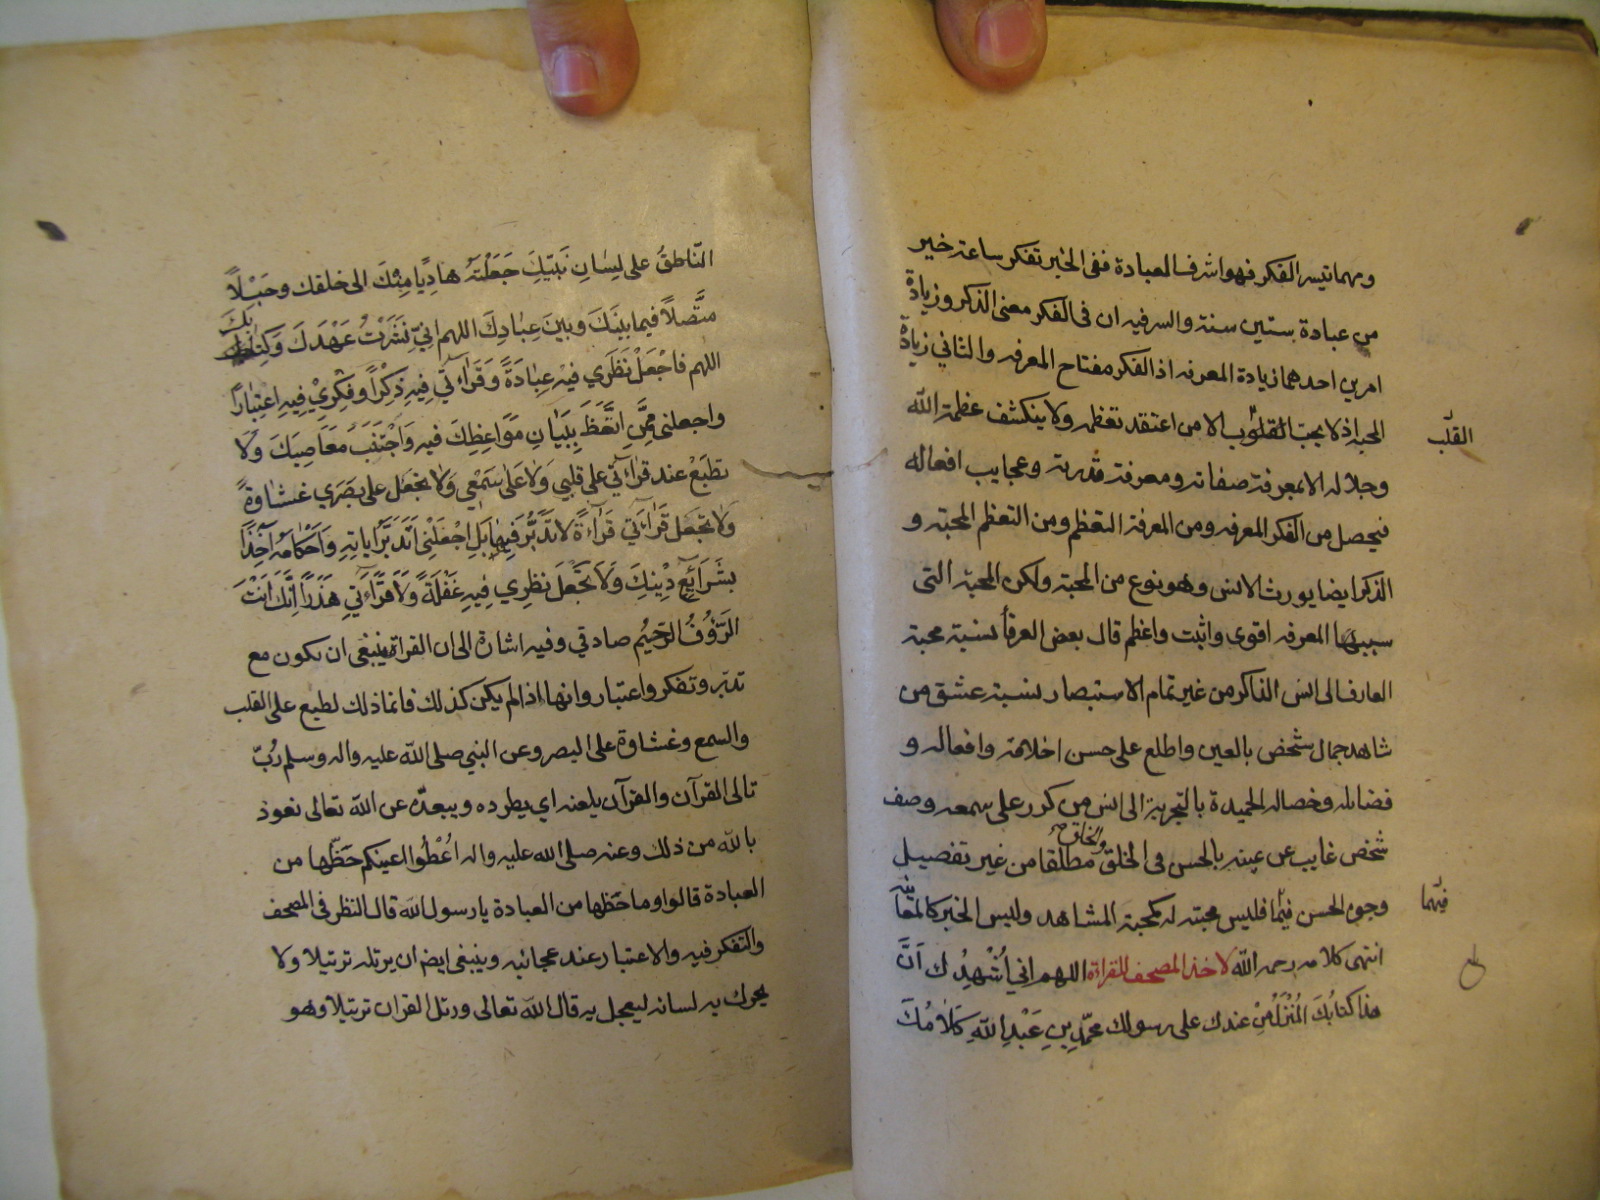 ومهما تيسر الفكر فهو اشرف العبادة ففى الخبر تفكر ساعة خير
من عبادة ستين سنة والسر فيه ان فى الفكر معنى الذكر وزيادة
امرين احدهما زيادة المعرفه اذ الفكر مفتاح المعرفه والثاني زيادة
المحبة اذ لا يحب القلوب الا من اعتقد تعظيمه ولا ينكشف عظمة الله
القلب
وجلاله الا بمعرفة صفاته ومعرفة قدرته وعجايب افعاله
فيحصل من الفكر المعرفه ومن المعرفة التعظم ومن التعظم المحبة و
الذكر ايضا يورث الانس وهو نوع من المحبة ولكن المحبة التى
سببها المعرفه اقوى واثبت واعظم قال بعض العرفأ لنسبة محبة
العارف الى انس الذاكر من غير تمام الاستبصار لنسبة عشق من
شاهد جمال شخص بالعين واطلع على حسن اخلاقه وافعاله و
فضائله وخصاله الحميدة بالتجربة الى انس من كرر على سمعه وصف
شخص غايب عن عينه بالحسن فى الخلق والخلق مطلقا من غير تفصيل
وجوه الحسن فيهما فليس محبته له كمحبة المشاهد وليس الخبر كالمعاينة
فيهما
انتهى كلامه رحمه الله لاخذ المصحف للقراءة اللهم اني أُشْهِدُك اَنَّ
هذا كتابُكَ المُنْزَلُ مِنْ عندك على رسولك محمّدِ بنِ عَبْدِ اللّهِ كَلامُكَ
النّاطقُ على لِسٰانِ نَبيّكِ جَعَلْتَهُ هادِيًا مِنْكَ الى خلقك وحَبْلاً
متَّصلاً فيما بينَكَ وبينَ عِبٰادِكَ اللهم اِنّي نَشَرْتُ عَهْدَكَ وَكِتٰابَكَ
اللهم فاجْعَلْ نَظَري فيهِ عِبٰادَةً وقَراءَتي فيهِ ذِكْراً وفِكْرِيْ فيهِ اعتِبٰاراً
واجعلنى مِمَّنِ اتَّعَظَ بِبَيٰانِ مَوَاعِظِكَ فيهِ وَاجْتَنَبَ مَعَاصِيَكَ وَلا
تطبَعْ عند قراءَتي على قلبي وَلا عَلى سَمْعي وَلا تجعَل على بصَري غشٰاوةً
وَلا تجعَل قَراءَتي قَراءةً لا تدَبُّرَ فيها بَلِ اجْعَلْني اَتدَبَّرُ اياتِهِ وَاَحْكامَهُ آخِذًا
بشَرَائِعِ دِينِكَ وَلا تجعَلَ نظري فيهِ غَفْلَةً وَلا قَراءَتي هَذَراً اِنَّكَ اَنْتَ
الرَّؤُفُ الرَحيْمُ صادقي وفيه اشارة الى ان القراءة ينبغى ان يكون مع
تدبّر وتفكر واعتبار وانها اذا لم يكن كذلك فانما ذلك لطبع على القلب
والسمع وغشاوة على البصر وعن النبي صلى الله عليه واله وسلم رُبّ
تالى القرآن والقرآن يلعنه اي يطرده ويبعدّه عن الله تعالى نعوذ
بالله من ذلك وعنه صلى الله عليه واله اعْطُوا اعينكم حَظّها من
العبادة قالوا وما حَظها من العبادة يا رسول الله قال النظر فى المصحف
والتفكر فيه والاعتبار عند عجائبه وينبغى ايضا ان يرتله ترتيلا ولا
يحرك به لسانه ليعجل به قال الله تعالى ورتل القران ترتيلا وهو